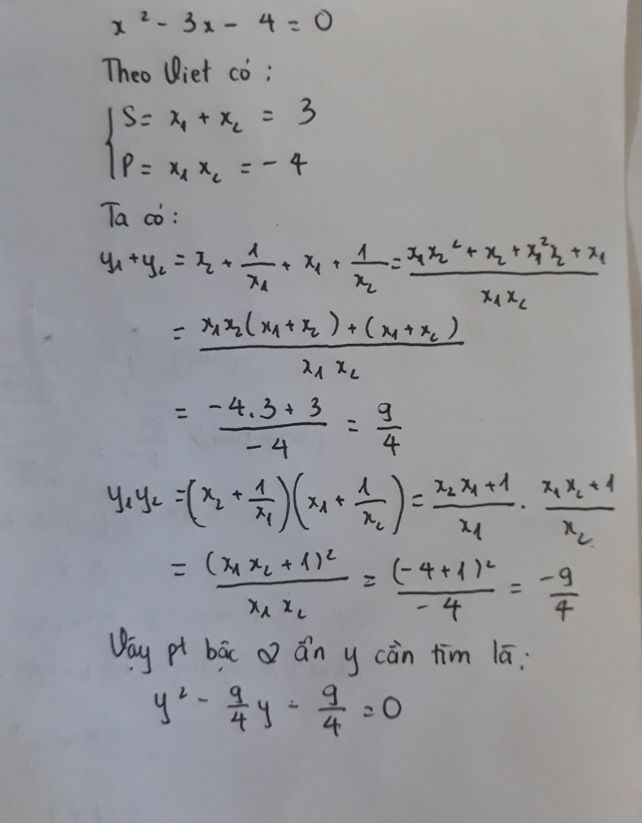 x² - 3x - 4 = 0
Theo Viet có :
S = x₁ + x₂ = 3
P = x₁ x₂ = - 4
Ta có :
y₁ + y₂ = x₂ + 1/x₁ + x₁ + 1/x₂ = (x₁x₂² + x₂ + x₁²x₂ + x₁)/(x₁x₂)
= (x₁x₂(x₁ + x₂) + (x₁ + x₂))/(x₁ x₂)
= (-4.3 + 3)/(-4) = 9/4
y₁y₂ = (x₂ + 1/x₁)(x₁ + 1/x₂) = (x₂x₁ + 1)/x₁ . (x₁x₂ + 1)/x₂
= (x₁ x₂ + 1)²/(x₁ x₂) = (-4 + 1)²/(-4) = -9/4
Vậy pt bậc 2 ẩn y cần tìm là :
y² - 9/4 y - 9/4 = 0